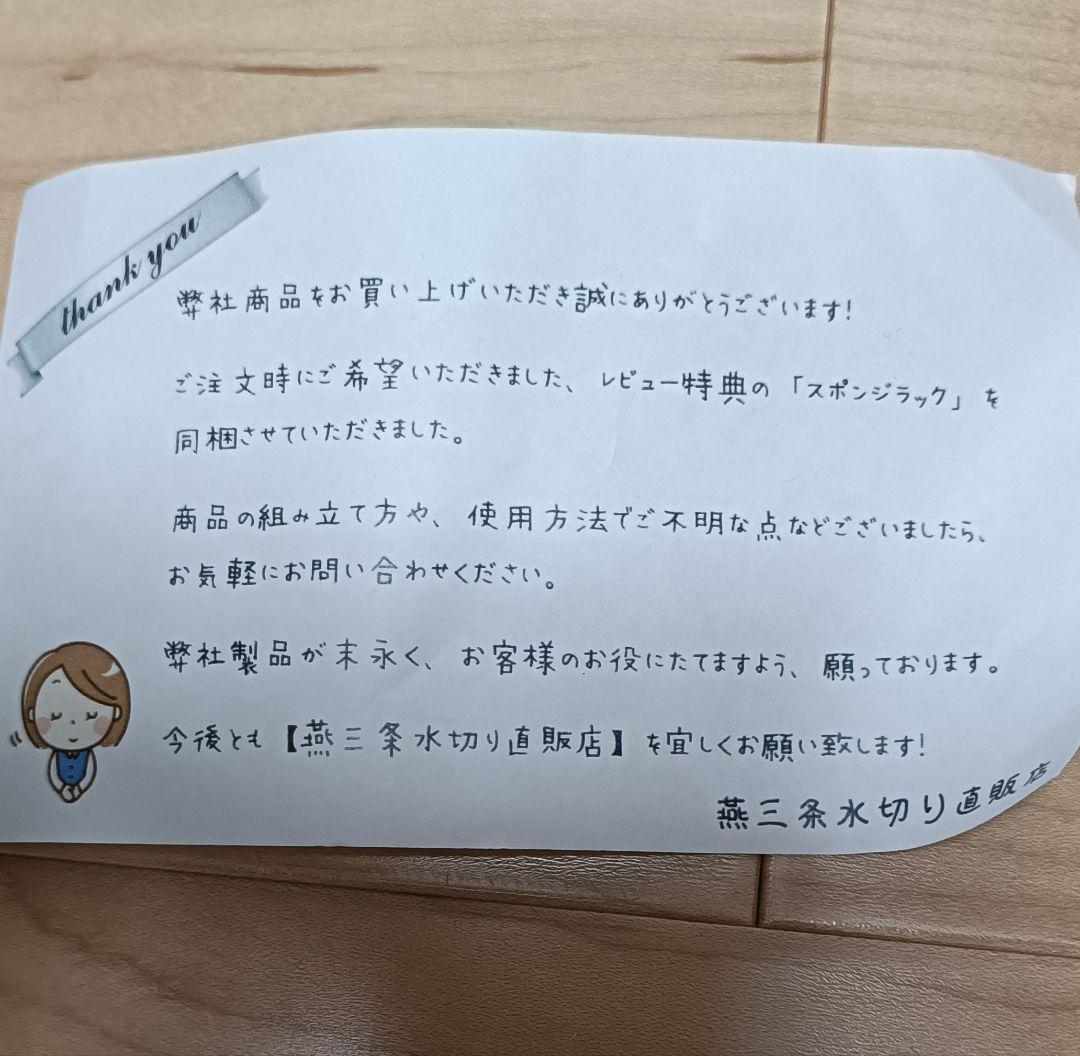 thank you
弊社商品をお買い上げいただき誠にありがとうございます!
ご注文時にご希望いただきました、レビュー特典の「スポンジラック」を
同梱させていただきました。
商品の組み立て方や、使用方法でご不明な点などございましたら、
お気軽にお問い合わせください。
弊社製品が末永く、お客様のお役にたてますよう、願っております。
今後とも【燕三条水切り直販店】を宜しくお願い致します!
燕三条水切り直販店